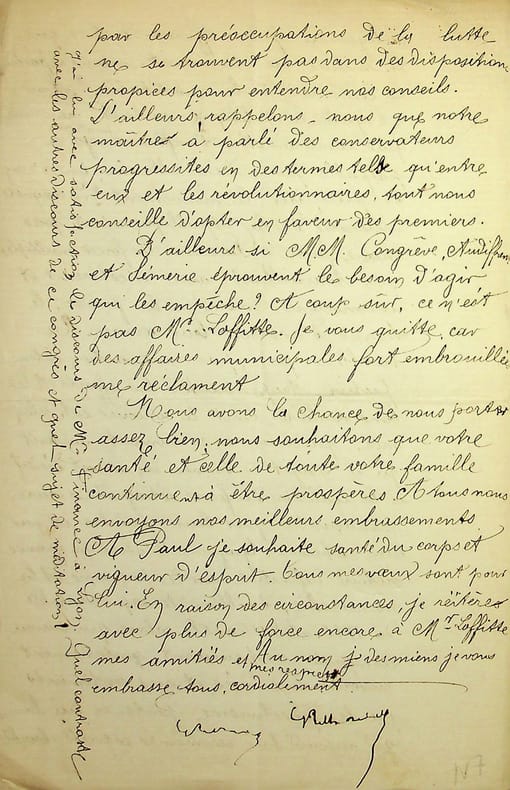 par les préoccupations de la lutte
ne se trouvent pas dans des disposition
propices pour entendre nos conseils.
D'ailleurs, rappelons-nous que notre
maître à parlé des conservateurs
progressites en des termes tels qu'entre
eux et les révolutionnaires, tout nous
conseille d'opter en faveur des premiers.
D'ailleurs si MM. Congrève, Audiffren
et Sémerie éprouvent le besoin d'agir
qui les empêche? A coup sûr, ce n'est
pas Mr. Laffitte. Je vous quitte, car
des affaires municipales fort embrouillée
me réclament
Nous avons la chance de nous porter
assez bien; nous souhaitons que votre
santé et celle de toute votre famille
continuent à être prospères. A tous nous
envoyons nos meilleurs embrassements
A Paul je souhaite santé du corps et
vigueur d'esprit. Tous mes vœux sont pour
lui. En raison des circonstances, je réitère
avec plus de force encore à Mr Laffitte
mes amitiés et mes respects
Au nom des miens je vous
embrasse tous, cordialement.
j'ai lu avec satisfaction le discours de Mr Finance à Lyon. Quel contraste
avec les autres discours de ce congrès et quel sujet de méditation!
N7